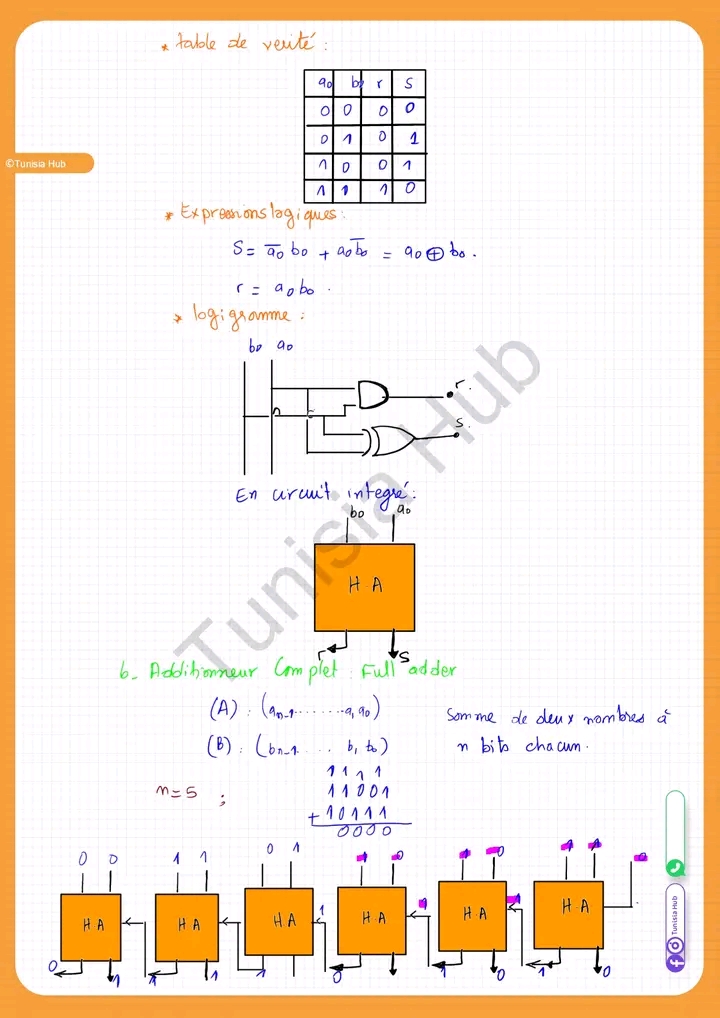 * table de verité :
a0 b0 r S
0 0 0 0
0 1 0 1
1 0 0 1
1 1 1 0
©Tunisia Hub
* Expressions logiques :
S = a̅0 b0 + a0 b̅0 = a0 ⊕ b0 .
r = a0 b0 .
* logigramme :
b0 a0
r.
S.
En circuit integré :
b0 a0
H.A
r S
Tunisia Hub
b- Additionneur Complet : Full adder
(A) : (an-1 ........ a1 a0)
(B) : (bn-1 .... b1 b0)
Somme de deux nombres à
n bits chacun.
n=5 ;
1 1 1 1
1 1 0 0 1
+ 1 0 1 1 1
0 0 0 0
0 0 1 1 0 1 1 0 1 0 1 1 0
H A H A H A H A H A H A
1 1 1
0 1 1 1 1 0 1 0 1 0
Tunisia Hub